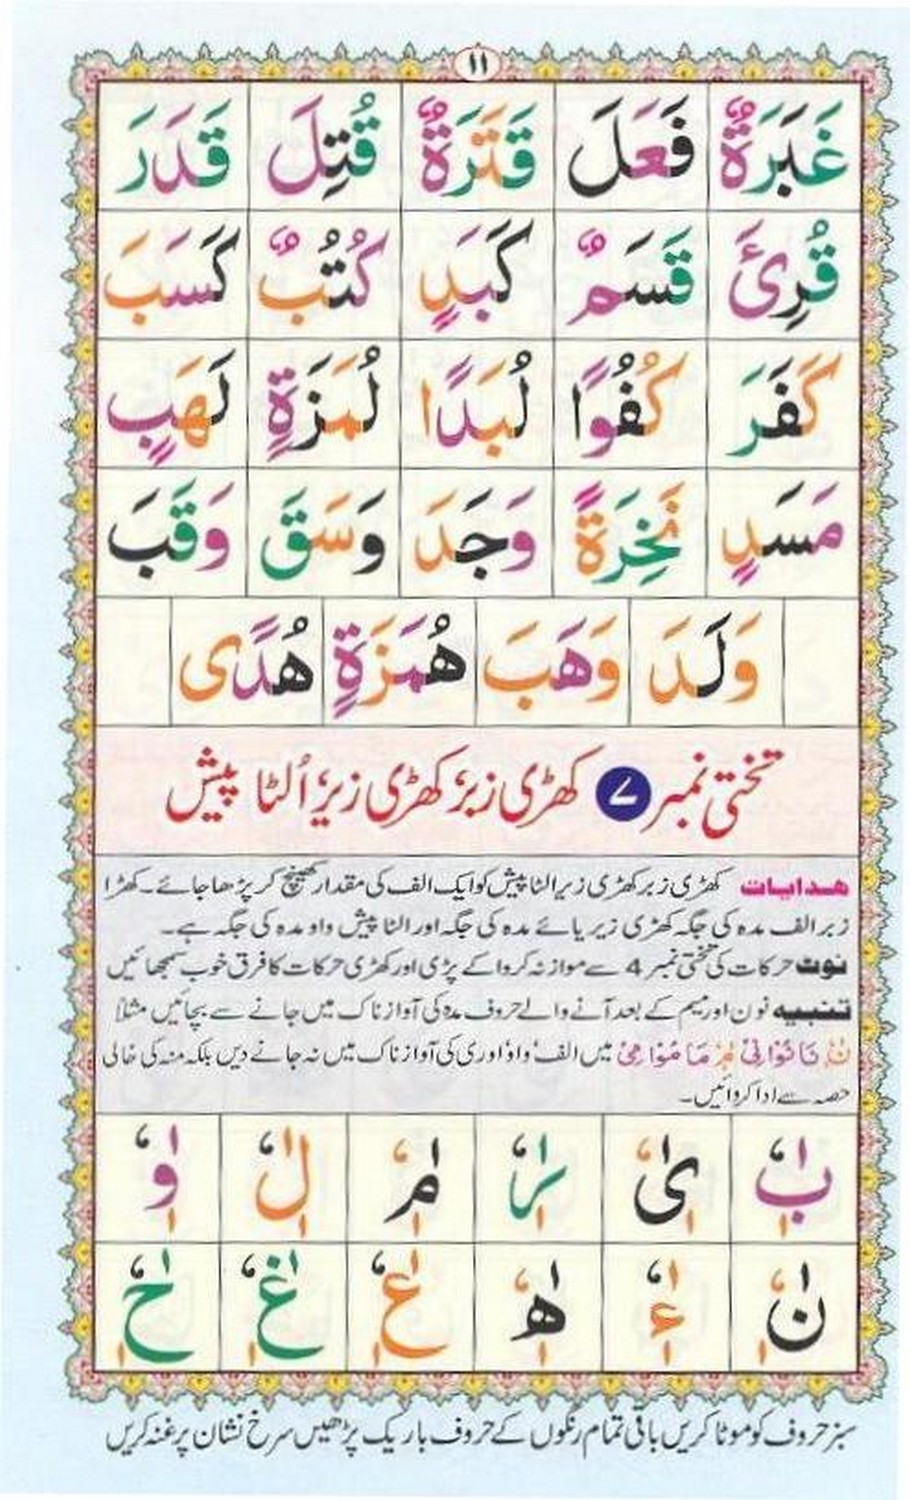 ١١
غَبَرَةٌ فَعَلَ قَتَرَةٌ قُتِلَ قَدَرَ
قُرِئَ قَسَمٌ كَبَدٍ كُتُبٌ كَسَبَ
كَفَرَ كُفُوًا لُبَدًا لُمَزَةٍ لَهَبٍ
مَسَدٍ نَخِرَةً وَجَدَ وَسَقَ وَقَبَ
وَلَدَ وَهَبَ هُمَزَةٍ هُدًى
تختی نمبر ۷ کھڑی زبر، کھڑی زیر، اُلٹا پیش
ھدایات کھڑی زبر کھڑی زیر الٹا پیش کو ایک الف کی مقدار کھینچ کر پڑھا جائے۔ کھڑا
زبر الف مدہ کی جگہ کھڑی زیر یائے مدہ کی جگہ اور الٹا پیش واو مدہ کی جگہ ہے۔
نوٹ حرکات کی تختی نمبر 4 سے موازنہ کروا کے پڑی اور کھڑی حرکات کا فرق خوب سمجھائیں
تنبیہ نون اور میم کے بعد آنے والے حروف مدہ کی آواز ناک میں جانے سے بچائیں مثلاً
نَا نُوْا نِىْ مَا مُوْا مِىْ میں الف، واو، اور ی کی آواز ناک میں نہ جانے دیں بلکہ منہ کی خالی
حصہ سے ادا کروائیں۔
بٰ یٰ رٰ مٰ لٰ وٰ
نٰ ءٰ ھٰ عٰ غٰ حٰ
سبز حروف کو موٹا کریں باقی تمام رنگوں کے حروف باریک پڑھیں سرخ نشان پر غنہ کریں